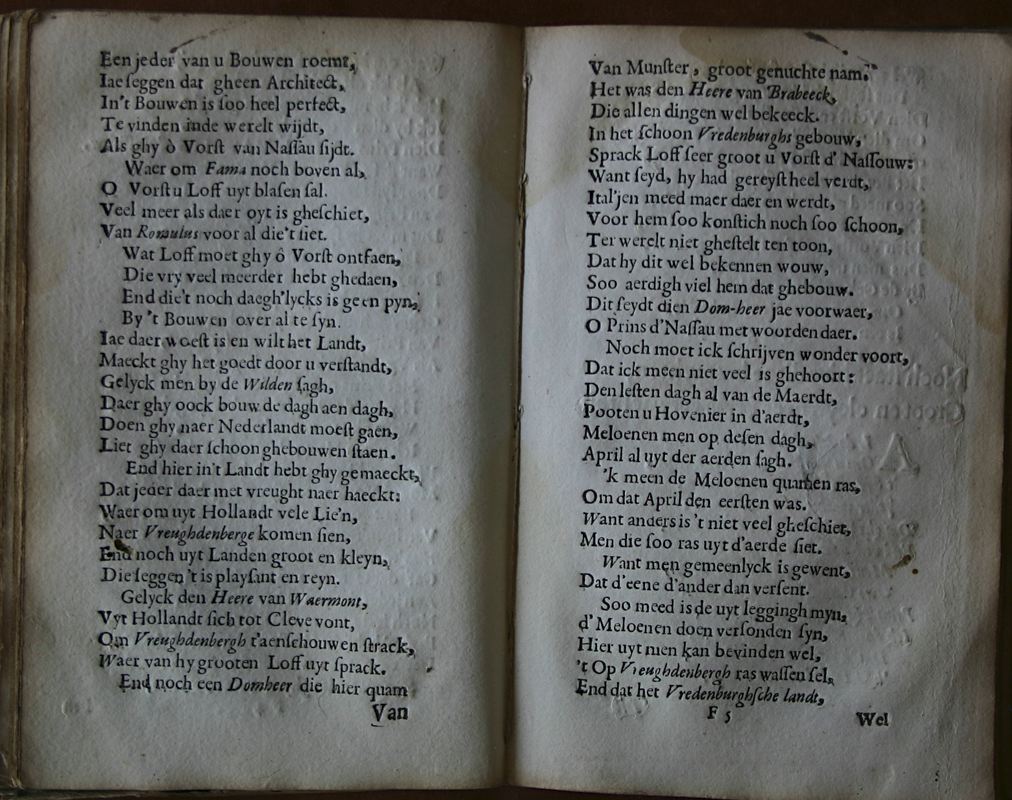 Een jeder van u Bouwen roemt,
Iae seggen dat gheen Architect,
In't Bouwen is soo heel perfect,
Te vinden inde werelt wijdt,
Als ghy ò Vorst van Nassau sijdt.
Waer om Fama noch boven al,
O Vorst u Loff uyt blasen sal.
Veel meer als daer oyt is gheschiet,
Van Romulus voor al die't siet.
Wat Loff moet ghy ô Vorst ontfaen,
Die vry veel meerder hebt ghedaen,
End die't noch daegh'lycks is geen pyn,
By 't Bouwen over al te syn.
Iae daer woest is en wilt het Landt,
Maeckt ghy het goedt door u verstandt,
Gelyck men by de Wilden sagh,
Daer ghy oock bouwde dagh aen dagh,
Doen ghy naer Nederlandt moest gaen,
Liet ghy daer schoon ghebouwen staen.
End hier in't Landt hebt ghy gemaeckt,
Dat jeder daer met vreught naer haeckt:
Waer om uyt Hollandt vele Lie'n,
Naer Vreughdenberge komen sien,
End noch uyt Landen groot en kleyn,
Die seggen 't is playsant en reyn.
Gelyck den Heere van Waermont,
Vyt Hollandt sich tot Cleve vont,
Om Vreughdenbergh t'aenschouwen strack,
Waer van hy grooten Loff uyt sprack.
End noch een Domheer die hier quam
Van
Van Munster, groot genuchte nam.
Het was den Heere van Brabeeck,
Die allen dingen wel bekeeck.
In het schoon Vredenburghs gebouw,
Sprack Loff seer groot u Vorst d' Nassouw:
Want seyd, hy had gereyst heel verdt,
Ital'jen meed maer daer en werdt,
Voor hem soo konstich noch soo schoon,
Ter werelt niet ghestelt ten toon,
Dat hy dit wel bekennen wouw,
Soo aerdigh viel hem dat ghebouw.
Dit seydt dien Dom-heer jae voorwaer,
O Prins d'Nassau met woorden daer.
Noch moet ick schrijven wonder voort,
Dat ick meen niet veel is ghehoort:
Den lesten dagh al van de Maerdt,
Pooten u Hovenier in d'aerdt,
Meloenen men op desen dagh,
April al uyt der aerden sagh.
'k meen de Meloenen quamen ras,
Om dat April den eersten was.
Want anders is 't niet veel gheschiet,
Men die soo ras uyt d'aerde siet.
Want men gemeenlyck is gewent,
Dat d'eene d'ander dan versent.
Soo meed is de uyt leggingh myn,
d' Meloenen doen versonden syn,
Hier uyt men kan bevinden wel,
't Op Vreughdenbergh ras wassen sel,
End dat het Vredenburghsche landt,
F 5
Wel